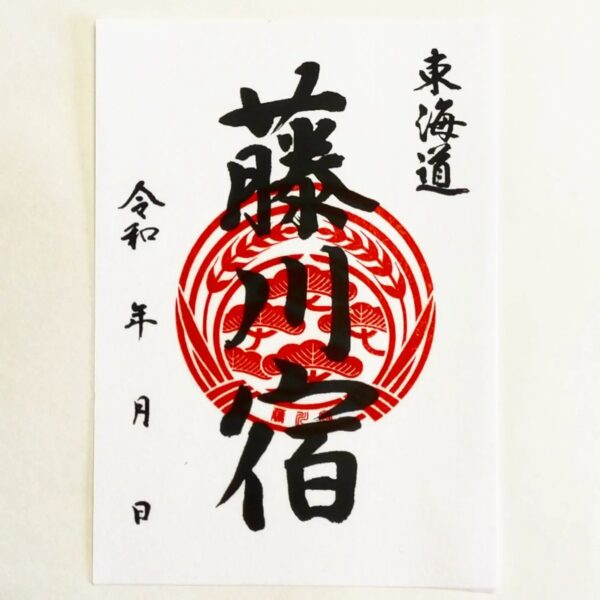 東海道
藤川宿
令和 年 月 日